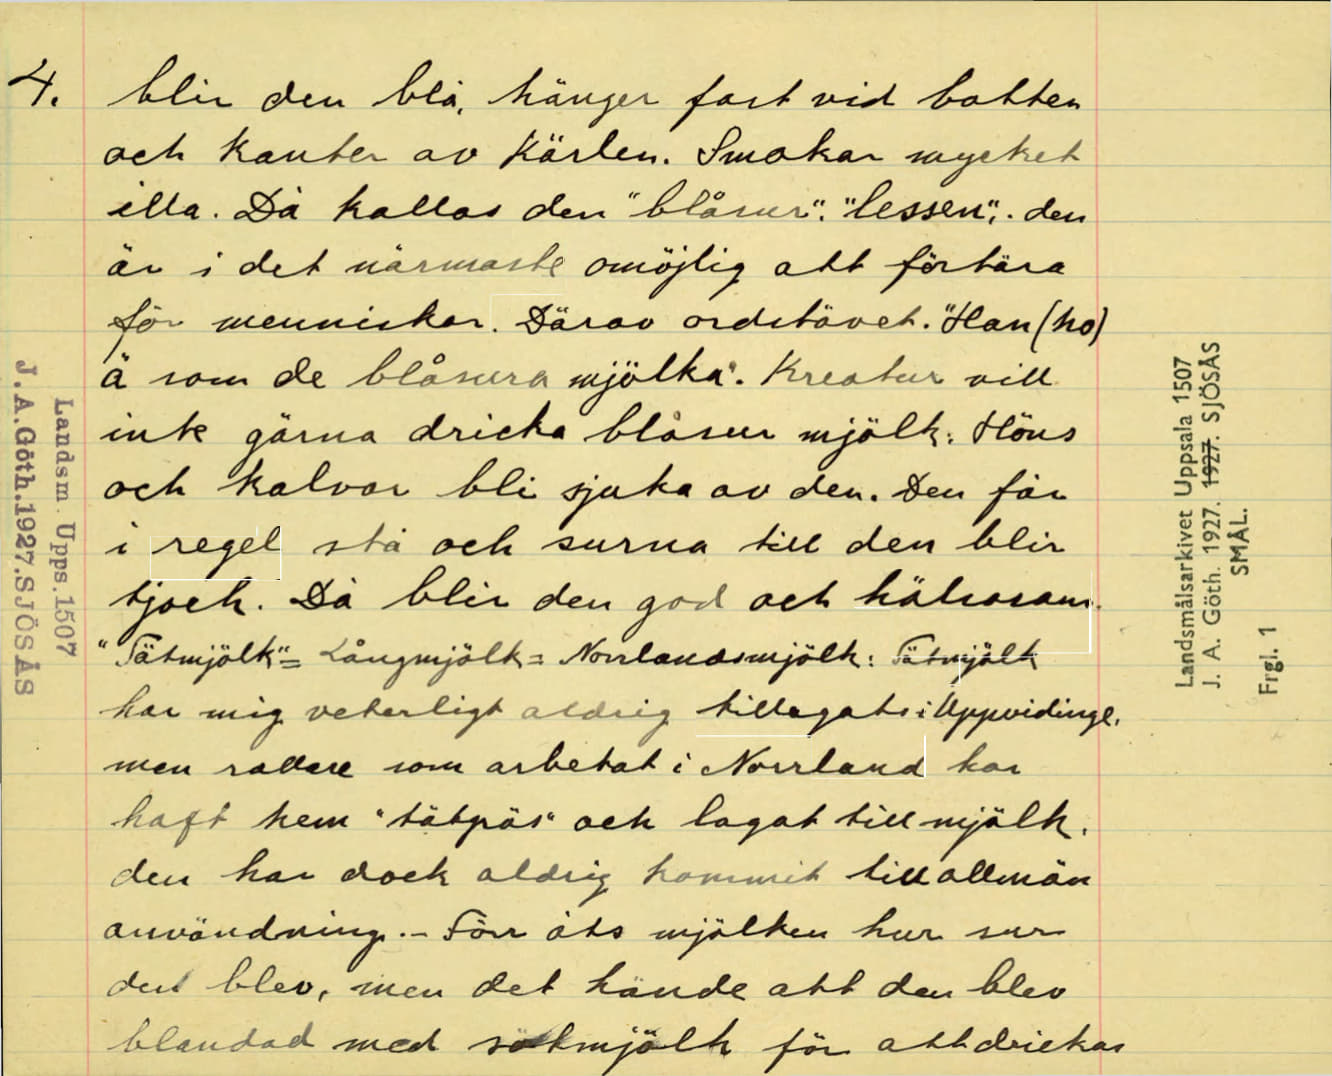 4.
blir den blå, hänger fast vid botten
och kanter av Kärlen. Smakar mycket
illa. Då kallas den "blåsur". "lessen". den
är i det närmaste omöjlig att förtära
för menniskor. Därav ordstävet. "Han (ho)
ä som de blåsura mjölka". Kreatur vill
inte gärna dricka blåsur mjölk. Höns
och kalvar bli sjuka av den. Den får
i regel stå och surna till den blir
tjock. Då blir den god och hälsosam.
"Tätmjölk" = Långmjölk = Norrlandsmjölk: Tätmjölk
har mig veterligt aldrig tillagats i Uppvidinge,
men rallare som arbetat i Norrland har
haft hem "tätgräs" och lagat till mjölk.
den har dock aldrig kommit till allmän
användning. - Förr åts mjölken hur sur
den blev, men det hände att den blev
blandad med sötmjölk för att drickas
Landsm. Upps. 1507
J. A. Göth. 1927. SJÖSÅS
Landsmålsarkivet Uppsala 1507
J. A. Göth. 1927. 1927. SJÖSÅS
SMÅL.
Frgl. 1